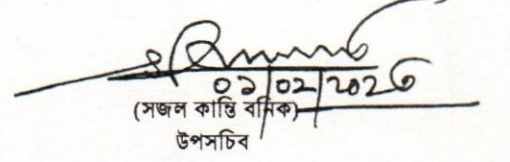 ০১/০২/২০২৬
(সজল কান্তি বনিক)
উপসচিব